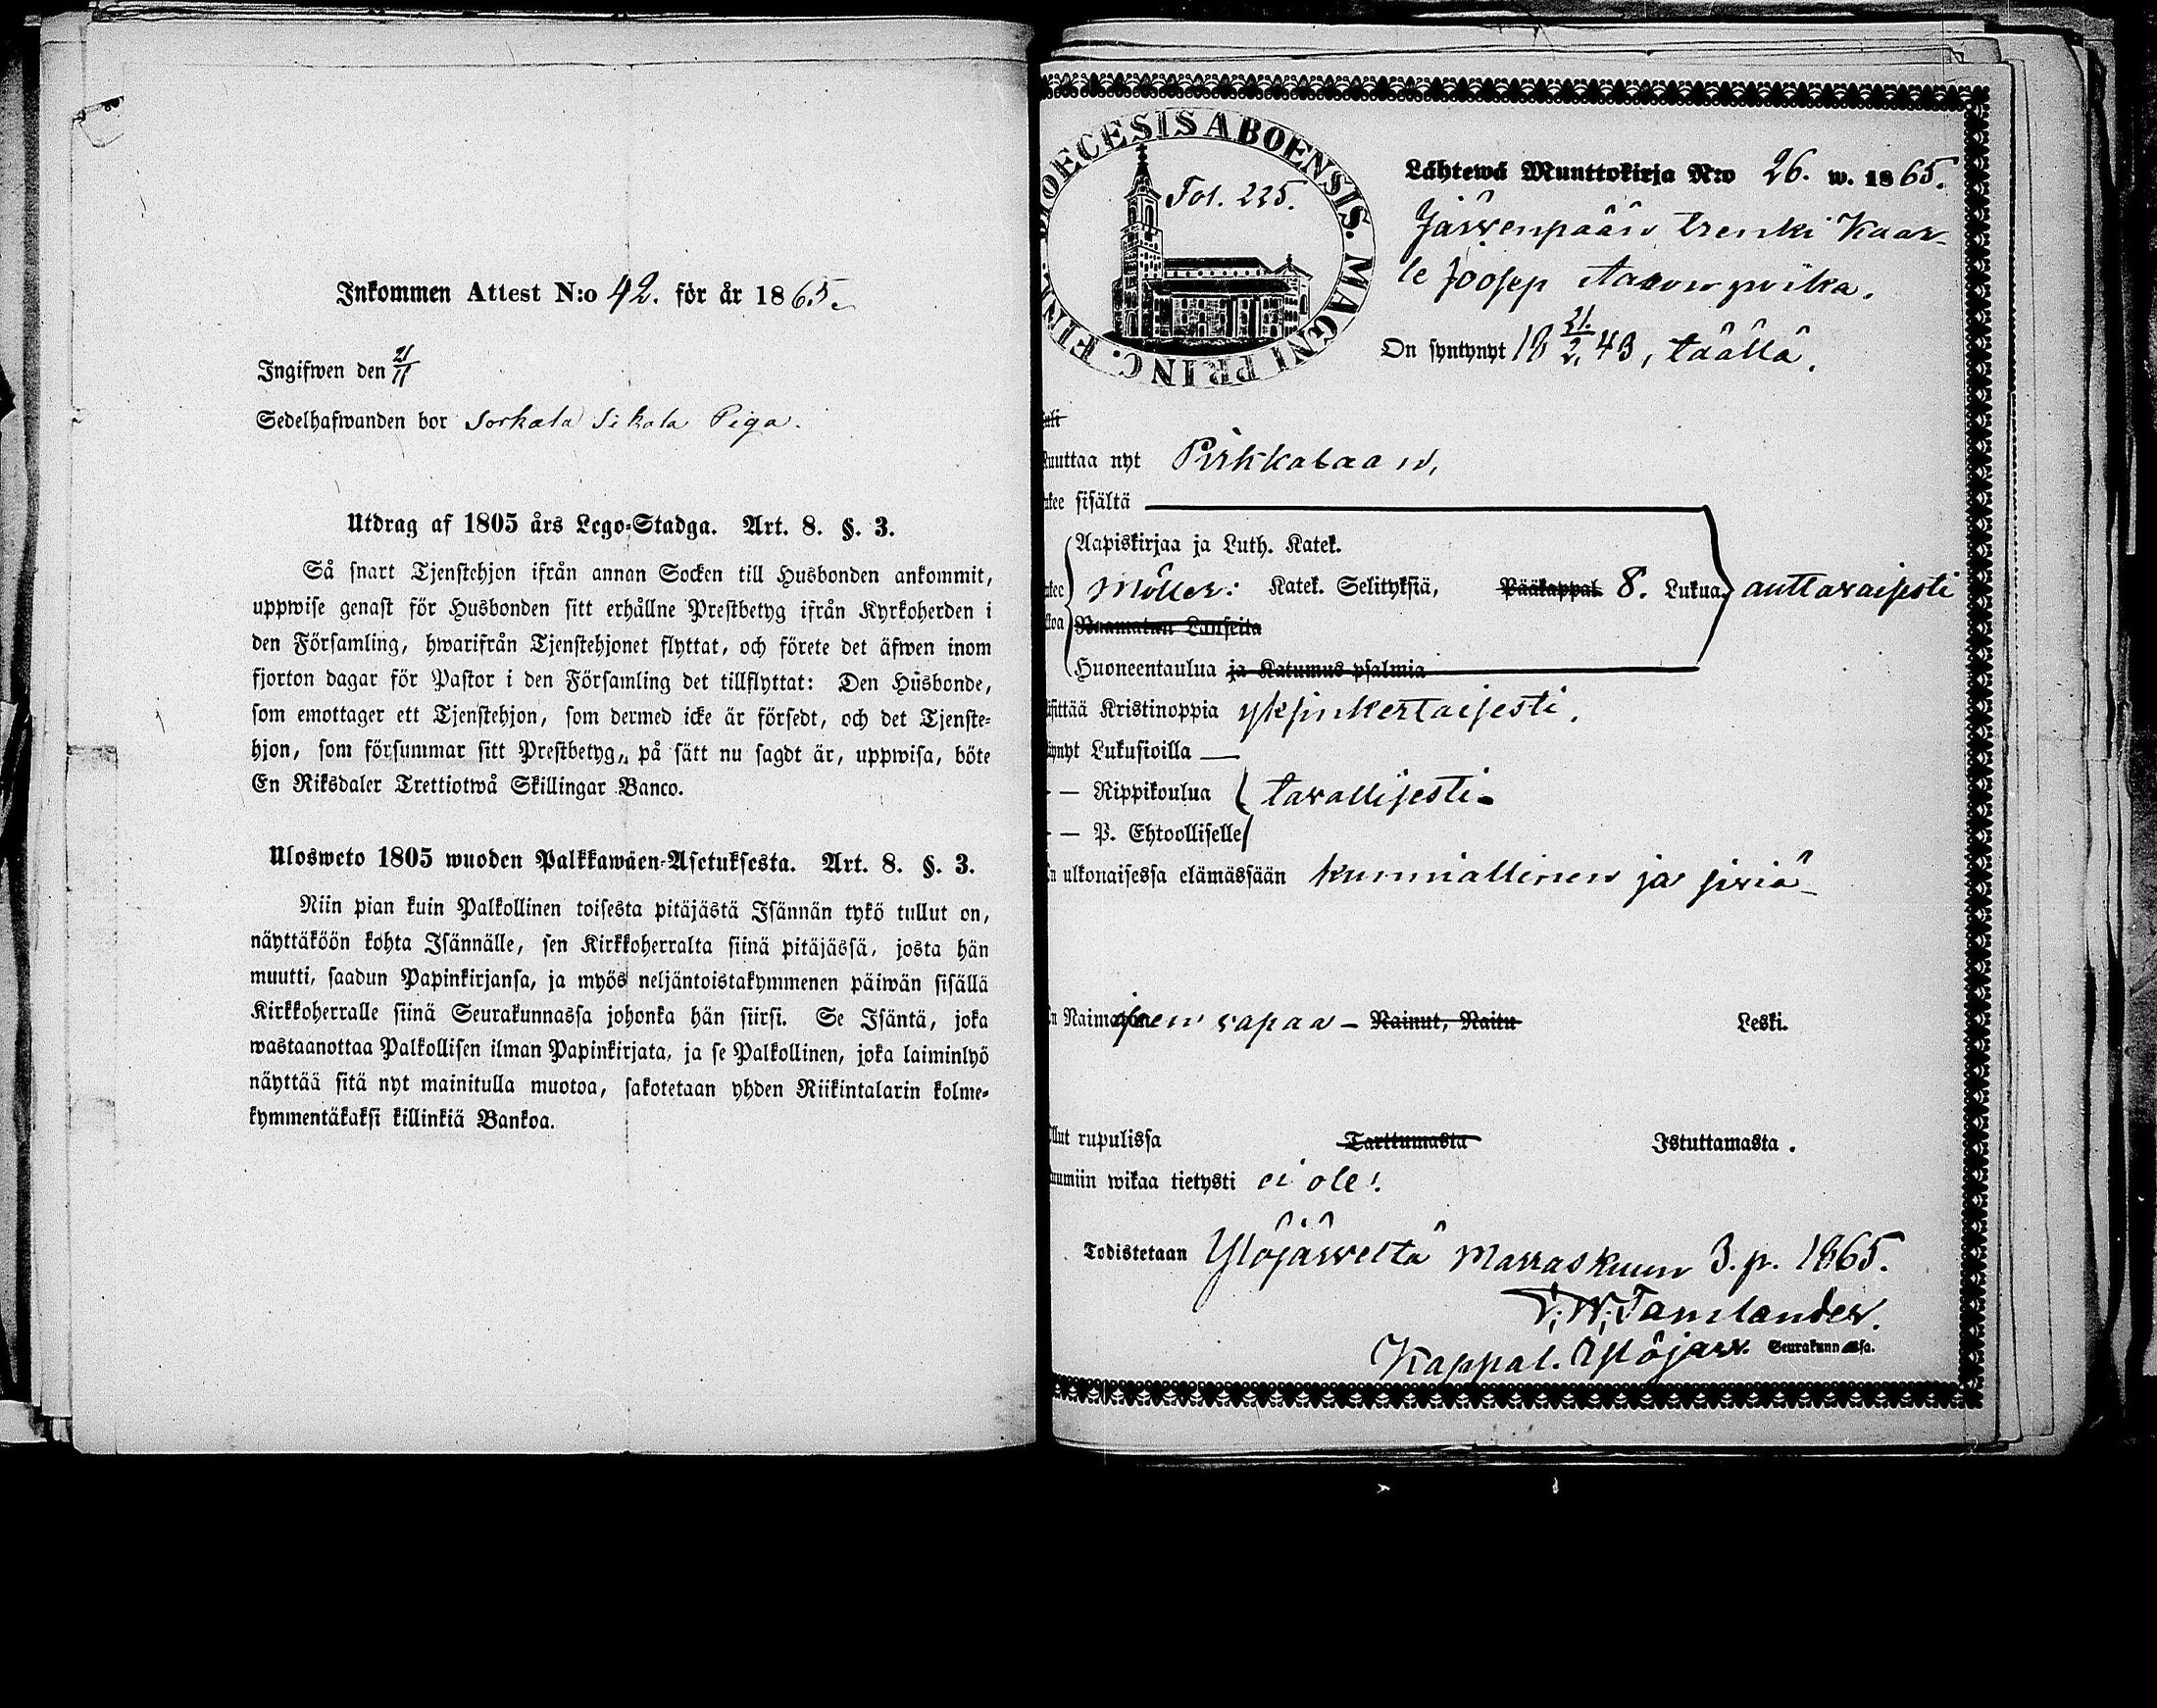 Inkommen Attest N:o 42. för år 1865.
Ingifwen den 21/11
Sedelhafwanden bor Sorkala Sikala Piga.
Utdrag af 1805 års Lego-Stadga. Art. 8. §. 3.
Så snart Tjenstehjon ifrån annan Socken till Husbonden ankommit,
uppwise genast för Husbonden sitt erhållne Prestbetyg ifrån Kyrkoherden i
den Församling, hwarifrån Tjenstehjonet flyttat, och förete det äfwen inom
fjorton dagar för Pastor i den Församling det tillflyttat: Den Husbonde,
som emottager ett Tjenstehjon, som dermed icke är försedt, och det Tjenste-
hjon, som försummar sitt Prestbetyg, på sätt nu sagdt är, uppwisa, böte
En Riksdaler Trettiotwå Skillingar Banco.
Ulosweto 1805 wuoden Palkkawäen-Asetuksesta. Art. 8. §. 3.
Niin pian kuin Palkollinen toisesta pitäjästä Isännän tykö tullut on,
näyttäköön kohta Isännälle, sen Kirkkoherralta siinä pitäjässä, josta hän
muutti, saadun Papinkirjansa, ja myös neljäntoistakymmenen päiwän sisällä
Kirkkoherralle siinä Seurakunnassa johonka hän siirsi. Se Isäntä, joka
wastaanottaa Palkollisen ilman Papinkirjata, ja se Palkollinen, joka laiminlyö
näyttää sitä nyt mainitulla muotoa, sakotetaan yhden Riikintalarin kolme-
kymmentäkaksi killinkiä Bankoa.
DIOECESIS ABOENSIS. MAGNI PRINC. FINL.
Fol. 225.
Lähtewä Muuttokirja N:o 26. w. 1865.
Järvenpään trenki Kaar-
le Joosep Aaronpoika.
On syntynyt 18 21./2. 43, täällä.
uli
uuttaa nyt Pirkkalaan,
kee sisältä
Aapiskirjaa ja Luth. Katek.
Möller: Katek. Selityksiä, Pääkappal. 8. Lukua. auttavaisesti
Raamatun Lauseita
Huoneentaulua ja Katumus-psalmia
sittää Kristinoppia yksinkertaisesti.
ynyt Lukusioilla —
— Rippikoulua tavallisesti.
— P. Ehtoolliselle
n ulkonaisessa elämässään kunniallinen ja siviä
vapaa — Nainut, Naitu Leski.
llut rupulissa Tarttumasta Istuttamasta.
umiin wikaa tietysti ei ole.
Todistetaan Ylöjärveltä Marraskuun 3. p. 1865.
Kappal. Ylöjärv. Seurakunnassa.